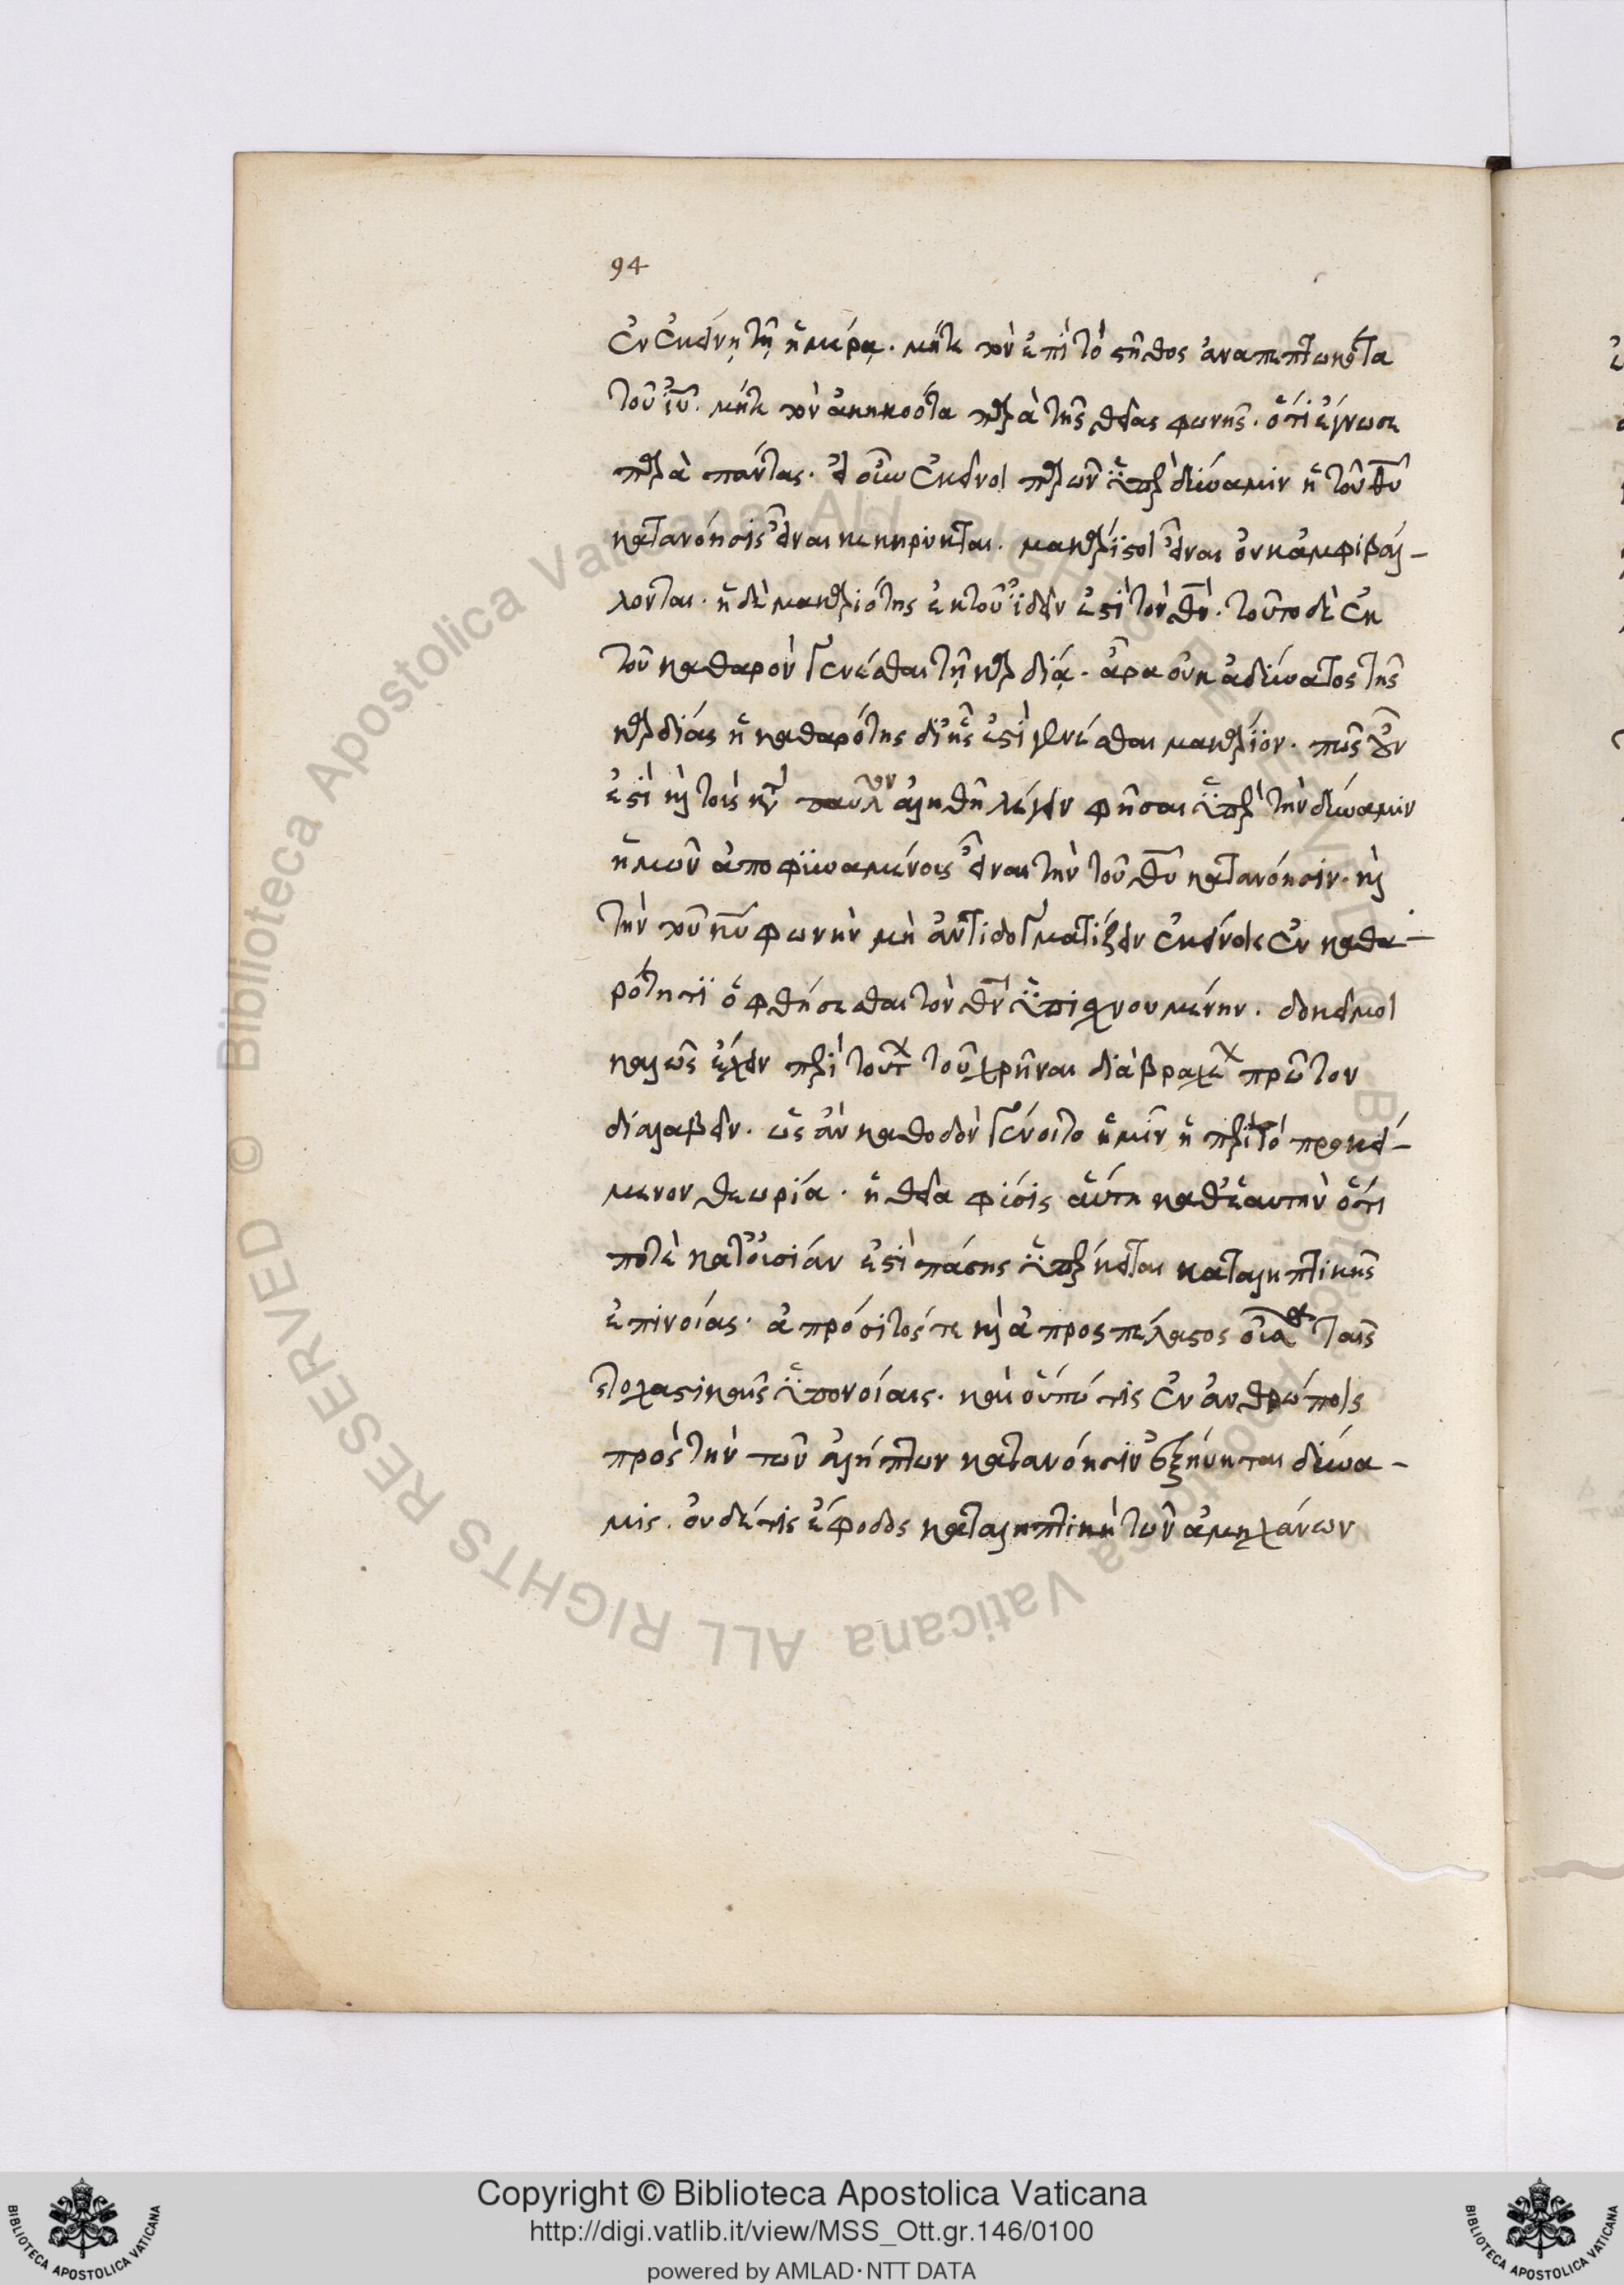 94
ἐν ἐκείνῃ τῇ ἡμέρᾳ. μήτε τὸν ἐπὶ τὸ στῆθος ἀναπεπτωκότα
τοῦ ἰῦ. μήτε τὸν ἀκηκοότα παρὰ τῆς θείας φωνῆς. ὅτι ἔγνωσε
παρὰ πάντας. εἰ οὖν ἐκεῖνοι παρ ὧν ὑπὲρ δύναμιν ἡ τοῦ θῦ
κατανόησις εἶναι κεκήρυκται. μακάριοι εἶναι οὐκ ἀμφιβάλ-
λονται. ἡ δὲ μακαριότης ἐκ τοῦ ἰδεῖν ἐστὶ τὸν θν. τοῦτο δὲ ἐκ
τοῦ καθαρὸν γενέσθαι τῇ καρδίᾳ. ἄρα οὐκ ἀδύνατος τῆς
καρδίας ἡ καθαρότης δι ἧς ἐστὶ γενέσθαι μακάριον. πῶς οὖν
ἐστὶ καὶ τοὺς κατὰ παῦλον ἀληθῆ λέγειν φῆσαι ὑπὲρ τὴν δύναμιν
ἡμῶν ἀποφηναμένους εἶναι τὴν τοῦ θῦ κατανόησιν. καὶ
τὴν τοῦ κῦ φωνὴν μὴ ἀντιδογματίζειν ἐκείνοις ἐν καθα-
ρότητι ὀφθήσεσθαι τὸν θν ὑπισχνουμένην. δοκεῖ μοι
καλῶς ἔχειν περὶ τούτου τοῦ χρῆναι διὰ βραχέων πρῶτον
διαλαβεῖν. ὡς ἂν καθοδὸν γένοιτο ἡμῖν ἡ περὶ τὸ προκεί-
μενον θεωρία. ἡ θεία φύσις αὕτη καθ ἑαυτὴν ὅτι
ποτὲ κατ οὐσίαν ἐστὶ πάσης ὑπέρκειται καταληπτικῆς
ἐπινοίας. ἀπρόσιτός τε καὶ ἀπροσπέλαστος οὖσα ταῖς
στοχαστικαῖς ὑπονοίαις. καὶ οὔπω τις ἐν ἀνθρώποις
πρὸς τὴν τῶν ἀλήπτων κατανόησιν ἐξηύρηται δύνα-
μις. οὐδέ τις ἔφοδος καταληπτικὴ τῶν ἀμηχάνων
Copyright © Biblioteca Apostolica Vaticana
http://digi.vatlib.it/view/MSS_Ott.gr.146/0100
powered by AMLAD·NTT DATA
© Biblioteca Apostolica Vaticana ALL RIGHTS RESERVED
© Biblioteca Apostolica Vaticana ALL RIGHTS RESERVED
BIBLIOTECA APOSTOLICA VATICANA
BIBLIOTECA APOSTOLICA VATICANA